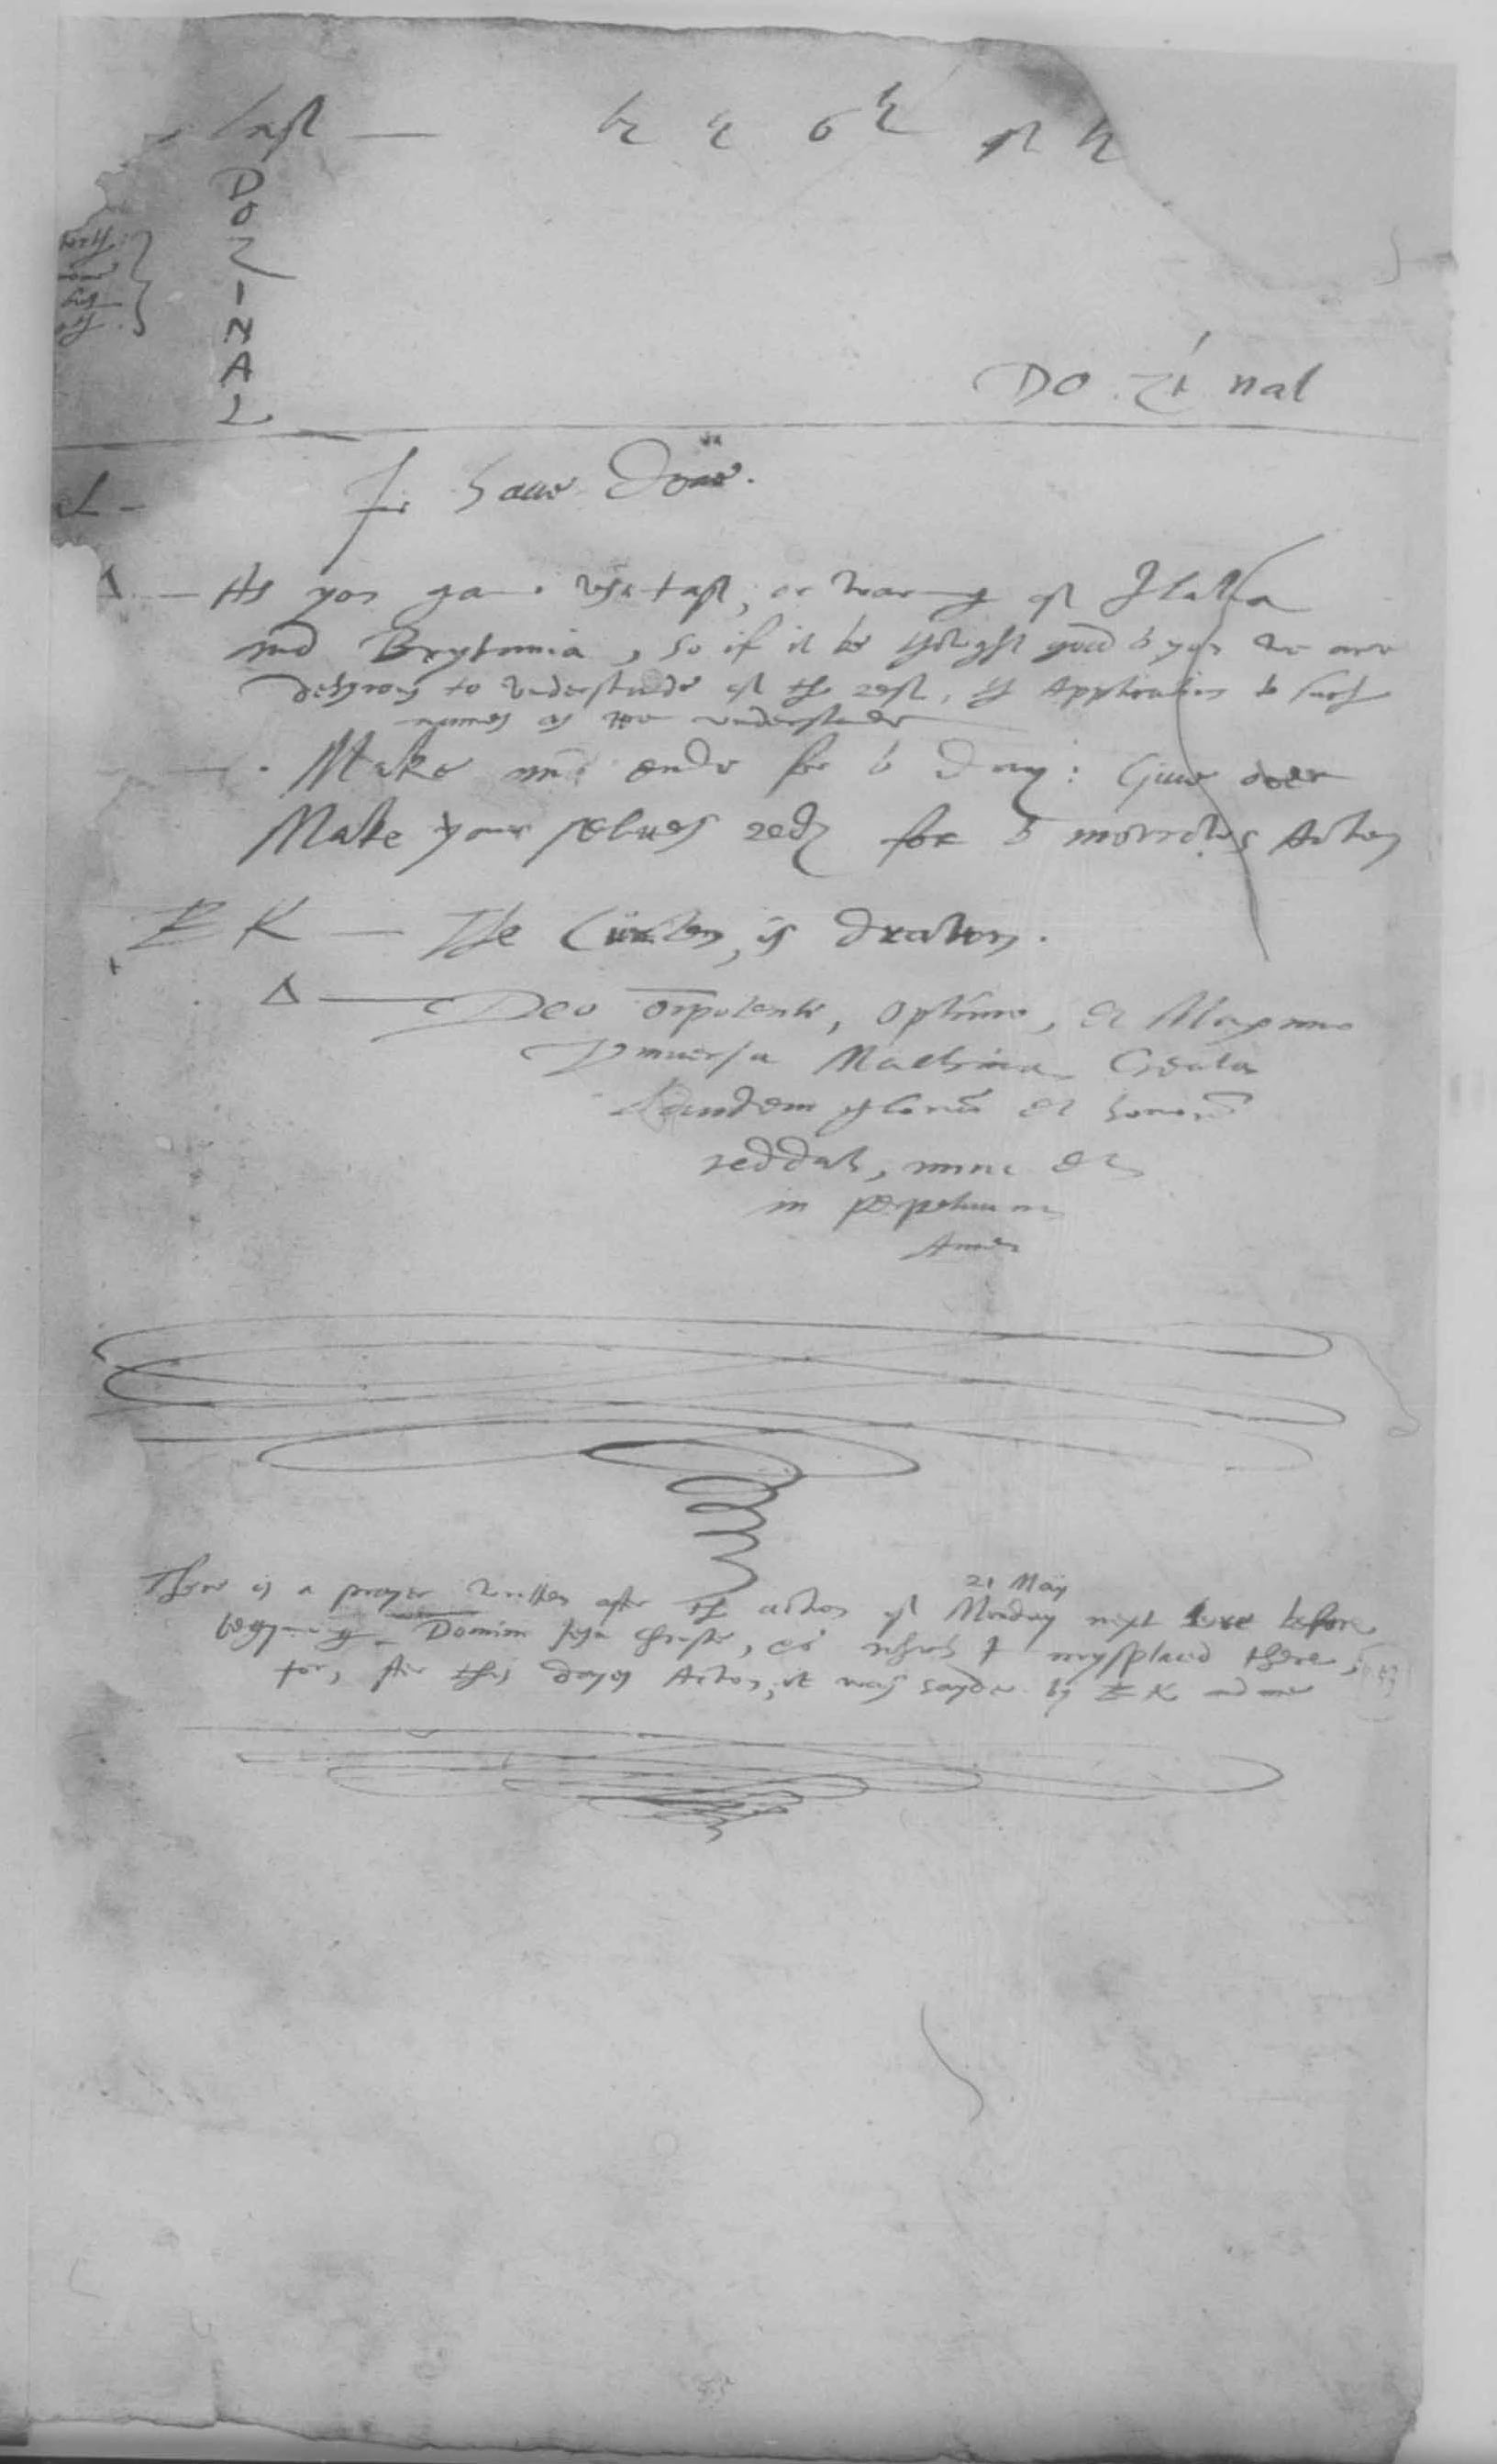 last —
D
O
Z
I
N
A
L
DO . zi nal
I have done.
Δ — As you gave us tast, or warning of Italia
and Brytania, so if it be thowght good to you we are
desyrous to understande of the rest, the Application to such
names as we understande
— . Make an ende for to day : Giue ouer
Make your selues redy for to morrows Action
EK — The Curten, is drawn.
Δ — Deo oīpotenti, optimo, et Maximo
Vniuersa Machina Creata
Laudem gloriā et honorē
reddat, nunc et
in perpetuum
Amen
There is a prayer written after the action of Monday next here before
21 May
begynning - Domine Jesu Christe, &c which I mysplaced there,
for, after this dayes Action, it was sayde by EK and me